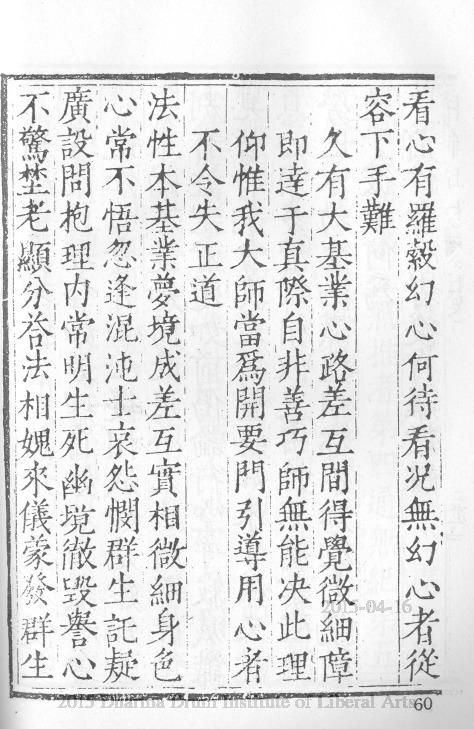 看心有羅縠幻心何待看況無幻心者從
容下手難
久有大基業心路差互間得覺微細障
即達于真際自非善巧師無能决此理
仰惟我大師當為開要門引導用心者
不令失正道
法性本基業夢境成差互實相微細身色
心常不悟忽逢混沌士哀怨憫群生託疑
廣設問抱理內常明生死幽境徹毀譽心
不驚埜老顯分荅法相媿來儀蒙發群生
2015-04-16
2015 Dharma Drum Institute of Liberal Arts
60